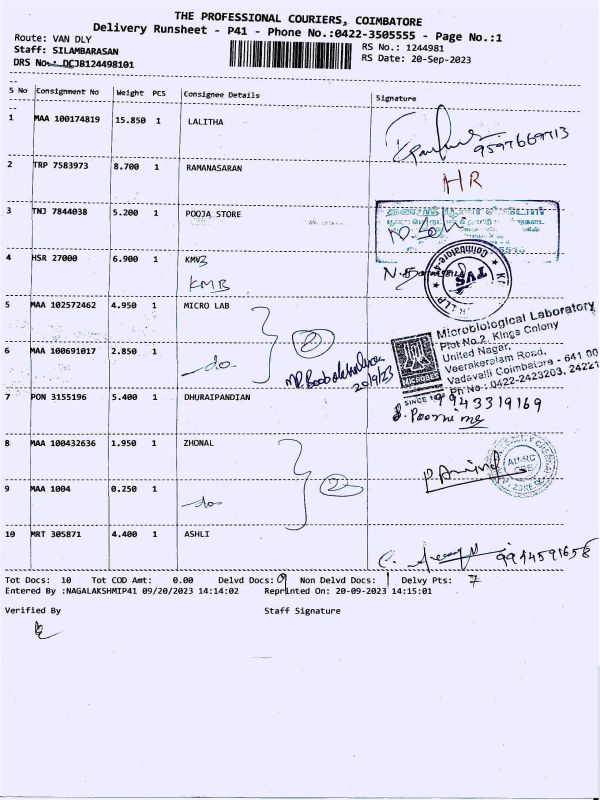 THE PROFESSIONAL COURIERS, COIMBATORE
Delivery Runsheet - P41 - Phone No.:0422-3505555 - Page No.:1
Route: VAN DLY
RS No.: 1244981
Staff: SILAMBARASAN
RS Date: 20-Sep-2023
DRS No.: DCJB124498101
S No Consignment No Weight PCS Consignee Details Signature
1 MAA 100174819 15.850 1 LALITHA
9597669713
2 TRP 7583973 8.700 1 RAMANASARAN HR
3 TNJ 7844038 5.200 1 POOJA STORE
4 HSR 27000 6.900 1 KMB
KMB
TVS
Coimbatore-4
5 MAA 102572462 4.950 1 MICRO LAB
2
6 MAA 100691017 2.850 1 -do-
20/9/23
Microbiological Laboratory
Plot No.2, Kings Colony
United Nagar,
Veerakeralam Road,
Vadavalli Coimbatore - 641 00
Ph No : 0422-2423203, 24221
MICROBES
SINCE
7 PON 3155196 5.400 1 DHURAIPANDIAN
9943319169
8 MAA 100432636 1.950 1 ZHONAL
2
9 MAA 1004 0.250 1 -do-
10 MRT 305871 4.400 1 ASHLI
9944591658
Tot Docs: 10 Tot COD Amt: 0.00 Delvd Docs: 9 Non Delvd Docs: 1 Delvy Pts: 7
Entered By :NAGALAKSHMIP41 09/20/2023 14:14:02 Reprinted On: 20-09-2023 14:15:01
Verified By Staff Signature